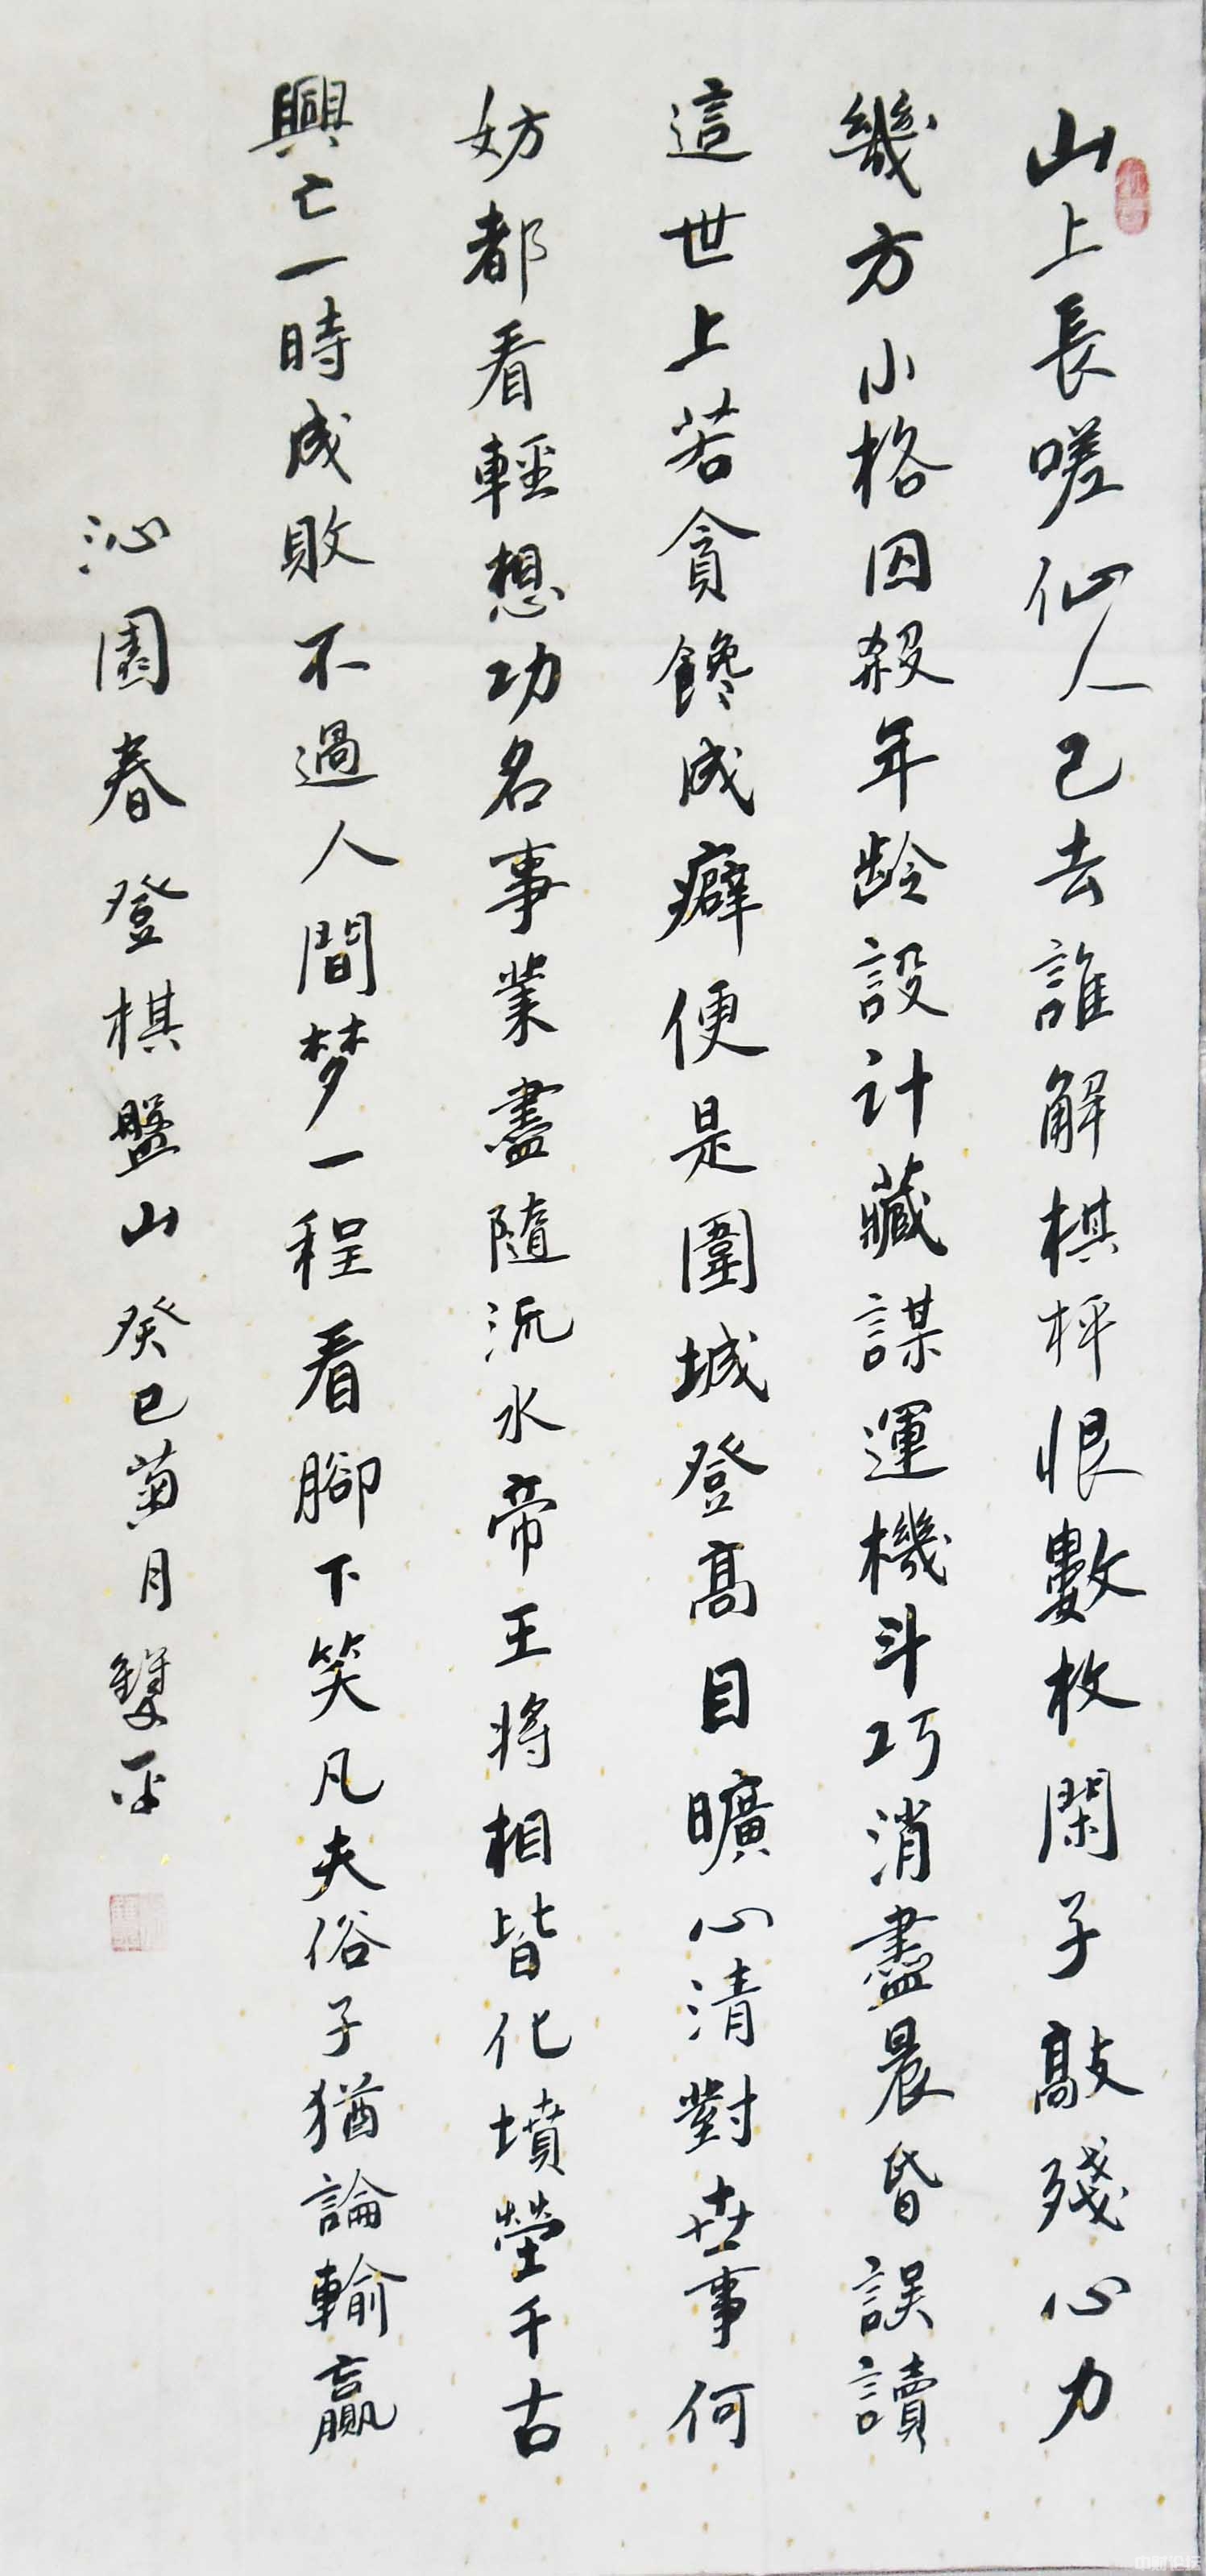 山上長嗟仙人已去誰解棋枰恨數枚閑子敲殘心力
幾方小格囚殺年齡設計藏謀運機斗巧消盡晨昏誤讀
這世上若貪饞成癖便是圍城登高目曠心清對世事何
妨都看輕想功名事業盡隨流水帝王將相皆化墳塋千古
興亡一時成敗不過人間梦一程看腳下笑凡夫俗子猶論輸贏
沁園春登棋盤山癸巳菊月雙平